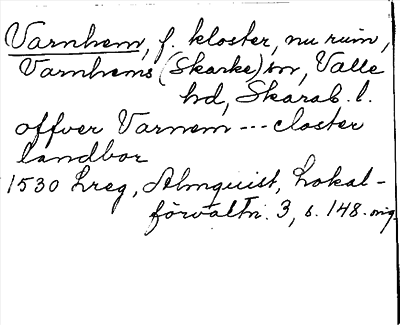 Varnhem, f. kloster, nu ruin,
Varnhems (Skarke) sn, Valle
hd, Skarab. l.
offver Varnem --- closter
landbor
1530 Lreg, Almquist, Lokal-
förvaltn. 3, s. 148. orig.